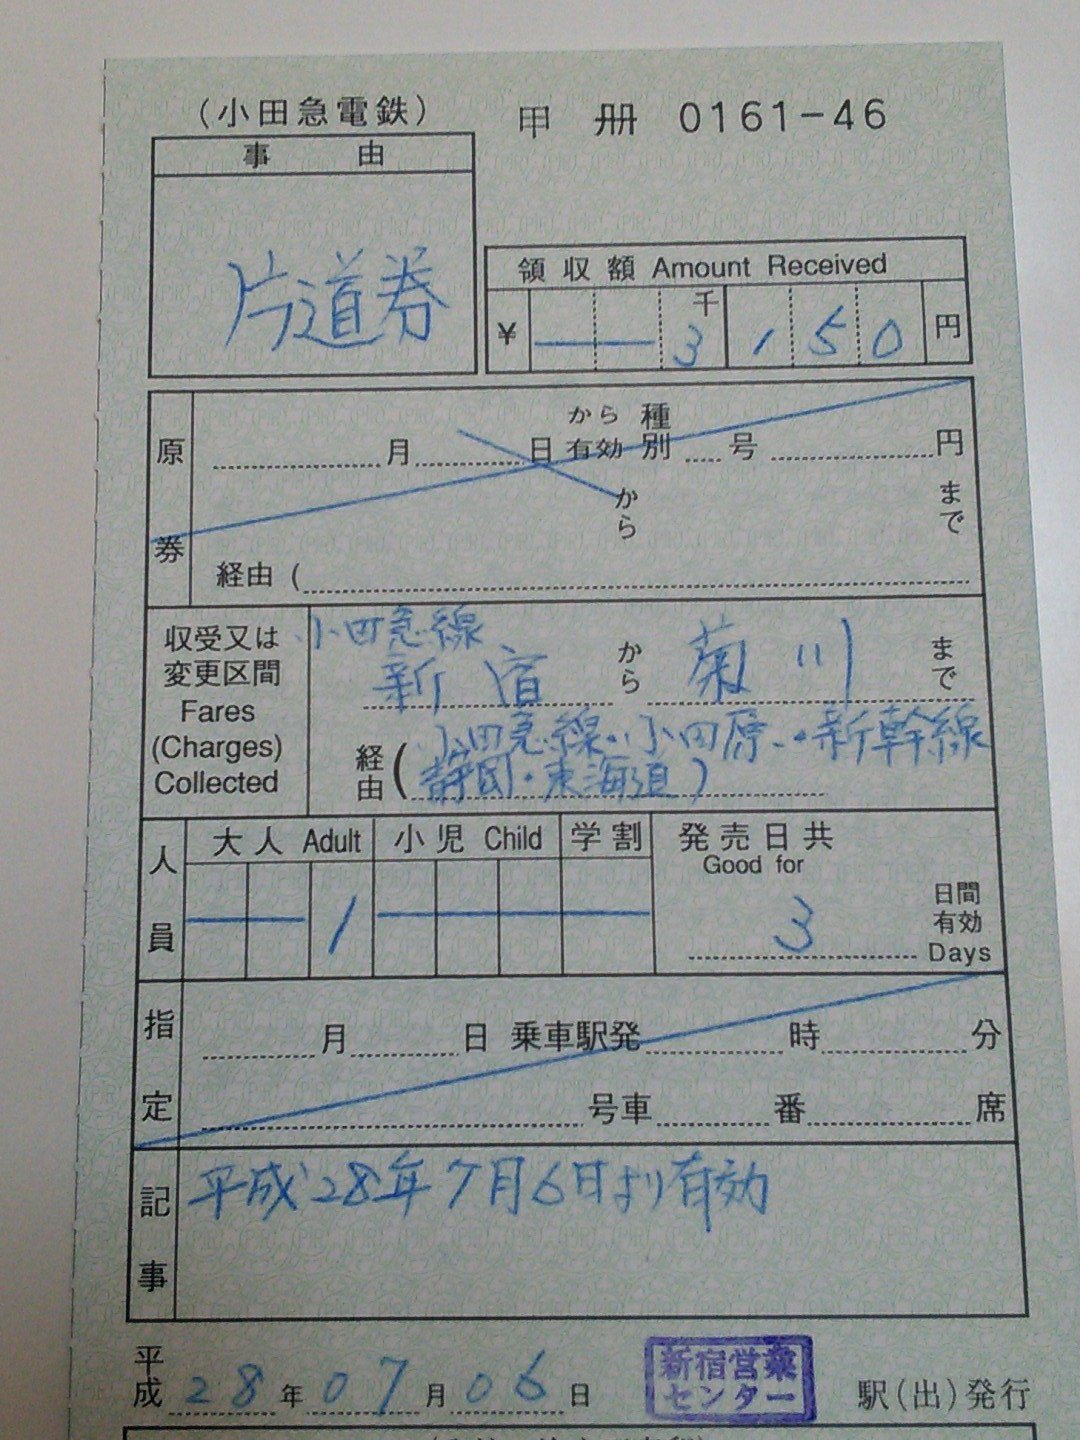 (小田急電鉄) 甲 冊 0161-46
事由
片道券
領収額 Amount Received
千
¥ 3 1 5 0 円
原券
月 日 から有効 種別 号 円
から まで
経由 (
収受又は変更区間
Fares (Charges) Collected
小田急線
新宿 から 菊川 まで
経由 (小田急線・小田原・新幹線
静岡・東海道)
人員
大人 Adult 小児 Child 学割 発売日共
Good for
1 3 日間有効 Days
指定
月 日 乗車駅発 時 分
号車 番 席
記事
平成28年7月6日より有効
平成 28年 07月 06日 新宿営業センター 駅(出)発行